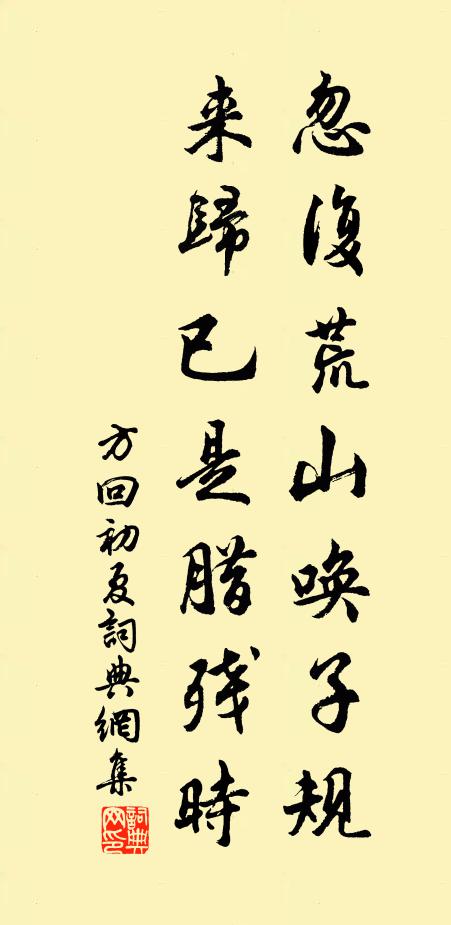 忽復荒山喚子規
来歸已是腊残時
方回初夏詞典網集
詞典網印